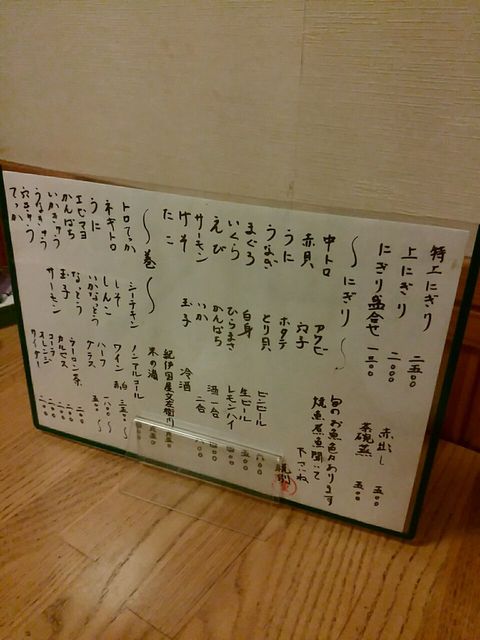 特上にぎり 二五〇〇
上にぎり 二〇〇〇
にぎり盛合せ 一三〇〇
赤出し 五〇〇
茶碗蒸 五〇〇
〜にぎり〜
旬のお魚色々あります
焼魚煮魚聞いて
下さいね
中トロ
赤貝
うに
うなぎ
まぐろ
いくら
えび
サーモン
げそ
たこ
アワビ
穴子
ホタテ
とり貝
白身
ひらまさ
かんぱち
いか
玉子
ビンビール 六〇〇
生ビール 五〇〇
レモンハイ 四〇〇
酒一合 四〇〇
二合 八〇〇
冷酒
紀伊国屋文左衛門
米の滴
税別
〜巻〜
トロてっか
ネギトロ
うに
エビマヨ
かんぱち
いかきゅう
うなきゅう
穴きゅう
てっか
シーチキン
しそ
しんこ
いかなっとう
なっとう
玉子
サーモン
ノンアルコール
ワイン 赤、白
ハーフ
グラス 五〇〇〜
ウーロン茶 二〇〇
カルピス 二〇〇
コーラ
オレンジ 二〇〇
ウイスキー